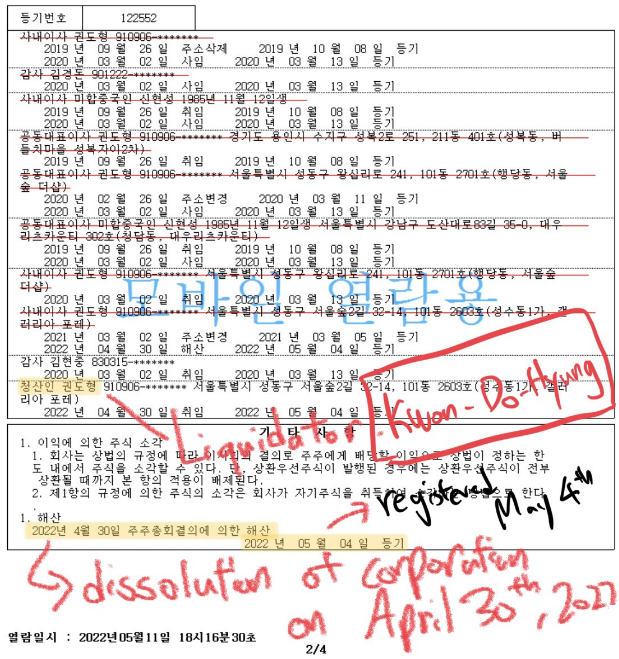 등기번호 122552
사내이사 권도형 910906-*******
2019 년 09 월 26 일 주소삭제 2019 년 10 월 08 일 등기
2020 년 03 월 02 일 사임 2020 년 03 월 13 일 등기
감사 김경돈 901222-*******
2020 년 03 월 02 일 사임 2020 년 03 월 13 일 등기
사내이사 미합중국인 신현성 1985년 11월 12일생
2019 년 09 월 26 일 취임 2019 년 10 월 08 일 등기
2020 년 03 월 02 일 사임 2020 년 03 월 13 일 등기
공동대표이사 권도형 910906-******* 경기도 용인시 수지구 성복2로 251, 211동 401호(성복동, 버
들치마을 성복자이2차)
2019 년 09 월 26 일 취임 2019 년 10 월 08 일 등기
공동대표이사 권도형 910906-******* 서울특별시 성동구 왕십리로 241, 101동 2701호(행당동, 서울
숲 더샵)
2020 년 02 월 26 일 주소변경 2020 년 03 월 11 일 등기
2020 년 03 월 02 일 사임 2020 년 03 월 13 일 등기
공동대표이사 미합중국인 신현성 1985년 11월 12일생 서울특별시 강남구 도산대로83길 35-0, 대우
리츠카운티 302호(청담동, 대우리츠카운티)
2019 년 09 월 26 일 취임 2019 년 10 월 08 일 등기
2020 년 03 월 02 일 사임 2020 년 03 월 13 일 등기
사내이사 권도형 910906-******* 서울특별시 성동구 왕십리로 241, 101동 2701호(행당동, 서울숲
더샵)
2020 년 03 월 02 일 취임 2020 년 03 월 13 일 등기
모바일 열람용
사내이사 권도형 910906-******* 서울특별시 성동구 서울숲2길 32-14, 101동 2603호(성수동1가, 갤
러리아 포레)
2021 년 03 월 02 일 주소변경 2021 년 03 월 05 일 등기
2022 년 04 월 30 일 해산 2022 년 05 월 04 일 등기
감사 김현중 830315-*******
2020 년 03 월 02 일 취임 2020 년 03 월 13 일 등기
청산인 권도형 910906-******* 서울특별시 성동구 서울숲2길 32-14, 101동 2603호(성수동1가, 갤러
리아 포레)
2022 년 04 월 30 일 취임 2022 년 05 월 04 일 등기
Liquidator: Kwon-Do-Hyung
기 타 사 항
1. 이익에 의한 주식 소각
1. 회사는 상법의 규정에 따라 이사회의 결의로 주주에게 배당할 이익으로 상법이 정하는 한
도 내에서 주식을 소각할 수 있다. 단, 상환우선주식이 발행된 경우에는 상환우선주식이 전부
상환될 때까지 본 항의 적용이 배제된다.
2. 제1항의 규정에 의한 주식의 소각은 회사가 자기주식을 취득하여 방법으로 한다
.
registered May 4th
1. 해산
2022년 4월 30일 주주총회결의에 의한 해산
2022 년 05 월 04 일 등기
dissolution of corporation
on April 30th, 2022
열람일시 : 2022년05월11일 18시16분30초
2/4